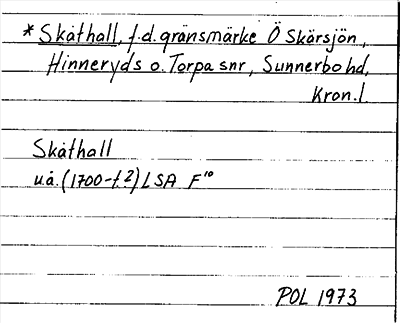 * Skåthall, f.d. gränsmärke Ö Skärsjön,
Hinneryds o. Torpa snr, Sunnerbo hd,
Kron. l.
Skåthall
u.å. (1700-t ?) LSA F¹⁰
POL 1973